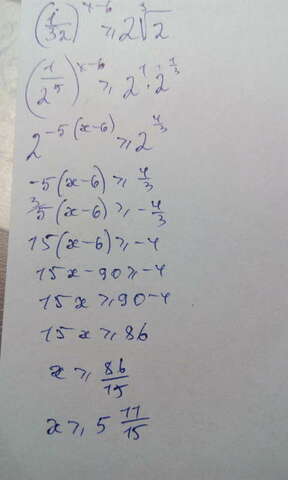 (1/32)^(x-6) ⩾ 2∛2
(1/2^5)^(x-6) ⩾ 2^1 · 2^(1/3)
2^(-5(x-6)) ⩾ 2^(4/3)
-5(x-6) ⩾ 4/3
³5(x-6) ⩾ -4/3
15(x-6) ⩾ -4
15x-90 ⩾ -4
15x ⩾ 90-4
15x ⩾ 86
x ⩾ 86/15
x ⩾ 5 11/15